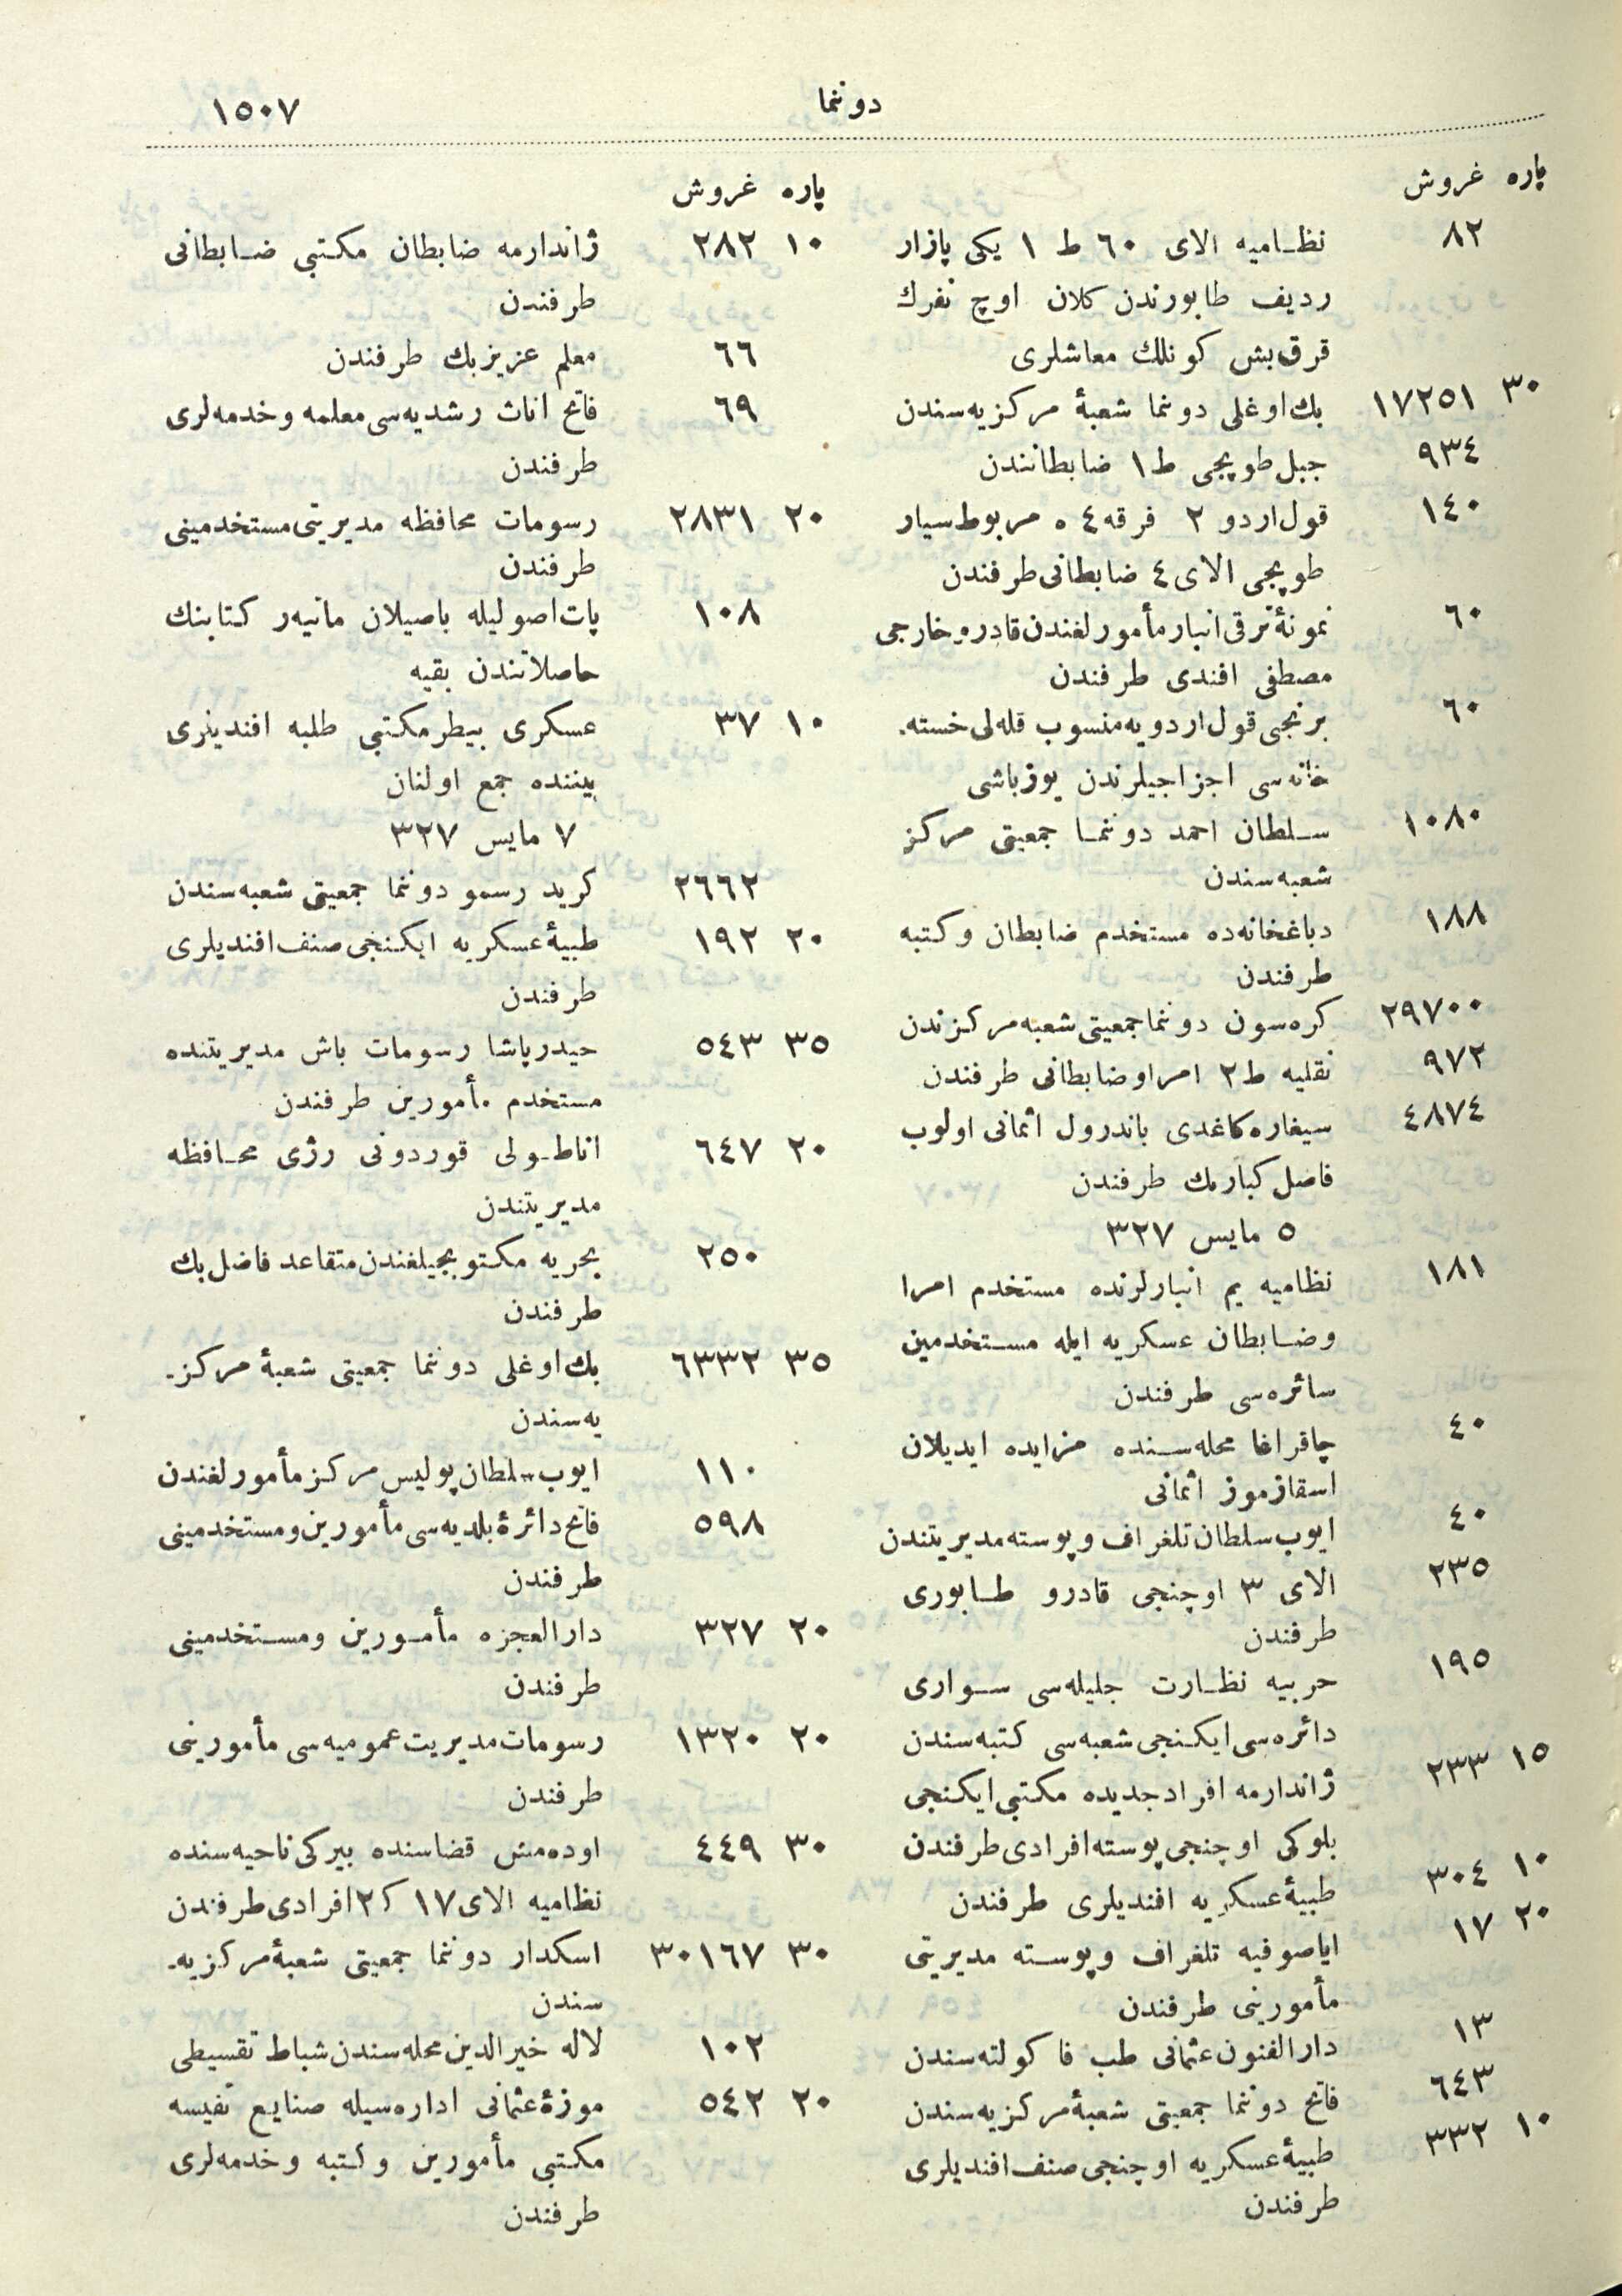 دوننما ١٥٠٧
پاره غروش
٨٢ نظــاميه الاى ٦٠ ط ١ يكى پازار
رديف طابورندن كلان اوچ نفرك
قرق‌بش كونلك معاشلرى
٣٠ ١٧٢٥١ بك‌اوغلى دوننما شعبۀ مركزيه‌سندن
٩٣٤ جبل‌طوپجى ط١ ضابطانندن
١٤٠ قول‌اردو ٢ فرقه ٤ ه مربوط سيار
طوپجى الاى ٤ ضابطانى طرفندن
٦٠ نمونۀ ترقى انبار مأمورلغندن قادرو خارجى
مصطفى افندى طرفندن
٦٠ برنجى قول‌اردويه منسوب قله‌لى خسته‌
خانه‌سى اجزاجيلرندن يوزباشى
١٠٨٠ ســلطان احمد دوننمــا جمعيتى مركز
شعبه‌سندن
١٨٨ دباغخانه‌ده مستخدم ضابطان و كتبه
طرفندن
٢٩٧٠٠ كره‌سون دوننما جمعيتى شعبه مركزندن
٩٧٢ نقليه ط٢ امرا و ضابطانى طرفندن
٤٨٧٤ سيغاره كاغدى باندرول اثمانى اولوب
فاضل كبار بك طرفندن
٥ مايس ٣٢٧
١٨١ نظاميه يم انبارلرنده مستخدم امرا
وضــابطان عسكريه ايله مســتخدمين
سائره‌سى طرفندن
٤٠ چاقر اغا محله‌ســنده مزايده ايديلان
اسقازموز اثمانى
٤٠ ايوب سلطان تلغراف و پوسته مديريتندن
٢٣٥ الاى ٣ اوچنجى قادرو طــابورى
طرفندن
١٩٥ حربيه نظــارت جليله‌سى ســوارى
دائره‌سى ايكنجى شعبه‌سى كتبه‌سندن
١٥ ٢٣٣ ژاندارمه افراد جديده مكتبى ايكنجى
بلوكى اوچنجى پوسته افرادى طرفندن
١٠ ٣٠٤ طبيۀ عسكريه افنديلرى طرفندن
٢٠ ١٧ اياصوفيه تلغراف و پوســته مديريتى
مأمورينى طرفندن
١٣ دارالفنون عثمانى طب فاكولته‌سندن
٦٤٣ فاتح دوننما جمعيتى شعبۀ مركزيه‌سندن
١٠ ٣٣٢ طبيۀ عسكريه اوچنجى صنف افنديلرى
طرفندن
پاره غروش
١٠ ٢٨٢ ژاندارمه ضابطان مكتبى ضــابطانى
طرفندن
٦٦ معلم عزيز بك طرفندن
٦٩ فاتح اناث رشديه‌سى معلمه و خدمه‌لرى
طرفندن
٢٠ ٢٨٣١ رسومات محافظه مديريتى مستخدمينى
طرفندن
١٠٨ پات اصوليله باصيلان مانيه‌ر كتابنك
حاصلاتندن بقيه
١٠ ٣٧ عسكرى بيطر مكتبى طلبه افنديلرى
بيننده جمع اولنان
٧ مايس ٣٢٧
٢٦٦٢ كريد رسمو دوننما جمعيتى شعبه‌سندن
٢٠ ١٩٢ طبيۀ عسكريه ايكنجى صنف افنديلرى
طرفندن
٣٥ ٥٤٣ حيدرپاشا رسومات باش مديريتنده
مستخدم مأمورين طرفندن
٢٠ ٦٤٧ اناطــولى قوردونى رژى محــافظه
مديريتندن
٢٥٠ بحريه مكتوبجيلغندن متقاعد فاضل بك
طرفندن
٣٥ ٦٣٣٢ بك‌اوغلى دوننما جمعيتى شعبۀ مركز-
يه‌سندن
١١٠ ايوب سلطان پوليس مركز مأمورلغندن
٥٩٨ فاتح دائرۀ بلديه‌سى مأمورين و مستخدمينى
طرفندن
٢٠ ٣٢٧ دارالعجزه مأمــورين ومســتخدمينى
طرفندن
٢٠ ١٣٢٠ رسومات مديريت عموميه‌سى مأمورينى
طرفندن
٣٠ ٤٤٩ اوده‌مش قضاسنده بيركى ناحيه‌سنده
نظاميه الاى ١٧ ك٢ افرادى طرفندن
٣٠ ٣٠١٦٧ اسكدار دوننما جمعيتى شعبۀ مركزيه-
سندن
١٠٢ لاله خيرالدين محله‌سندن شباط تقسيطى
٢٠ ٥٤٢ موزۀ عثمانى اداره‌سيله صنايع نفيسه
مكتبى مأمورين و كتبه و خدمه‌لرى
طرفندن